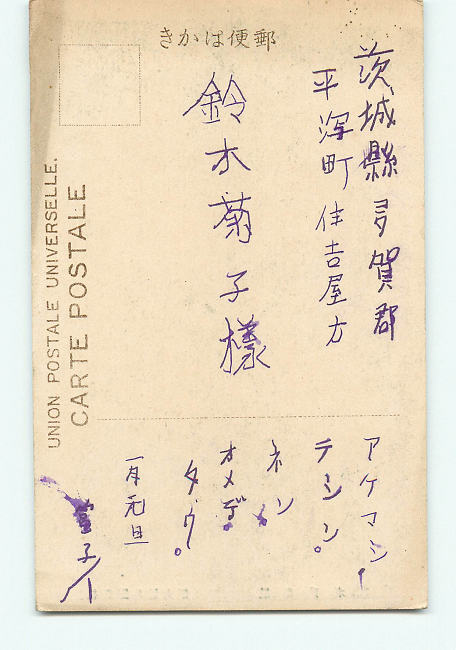 郵便はかき
茨城縣多賀郡
平潟町 住吉屋方
鈴木菊子様
アケマシ
テシン。
ネン
オメデ
タウ。
一月元旦
UNION POSTALE UNIVERSELLE.
CARTE POSTALE